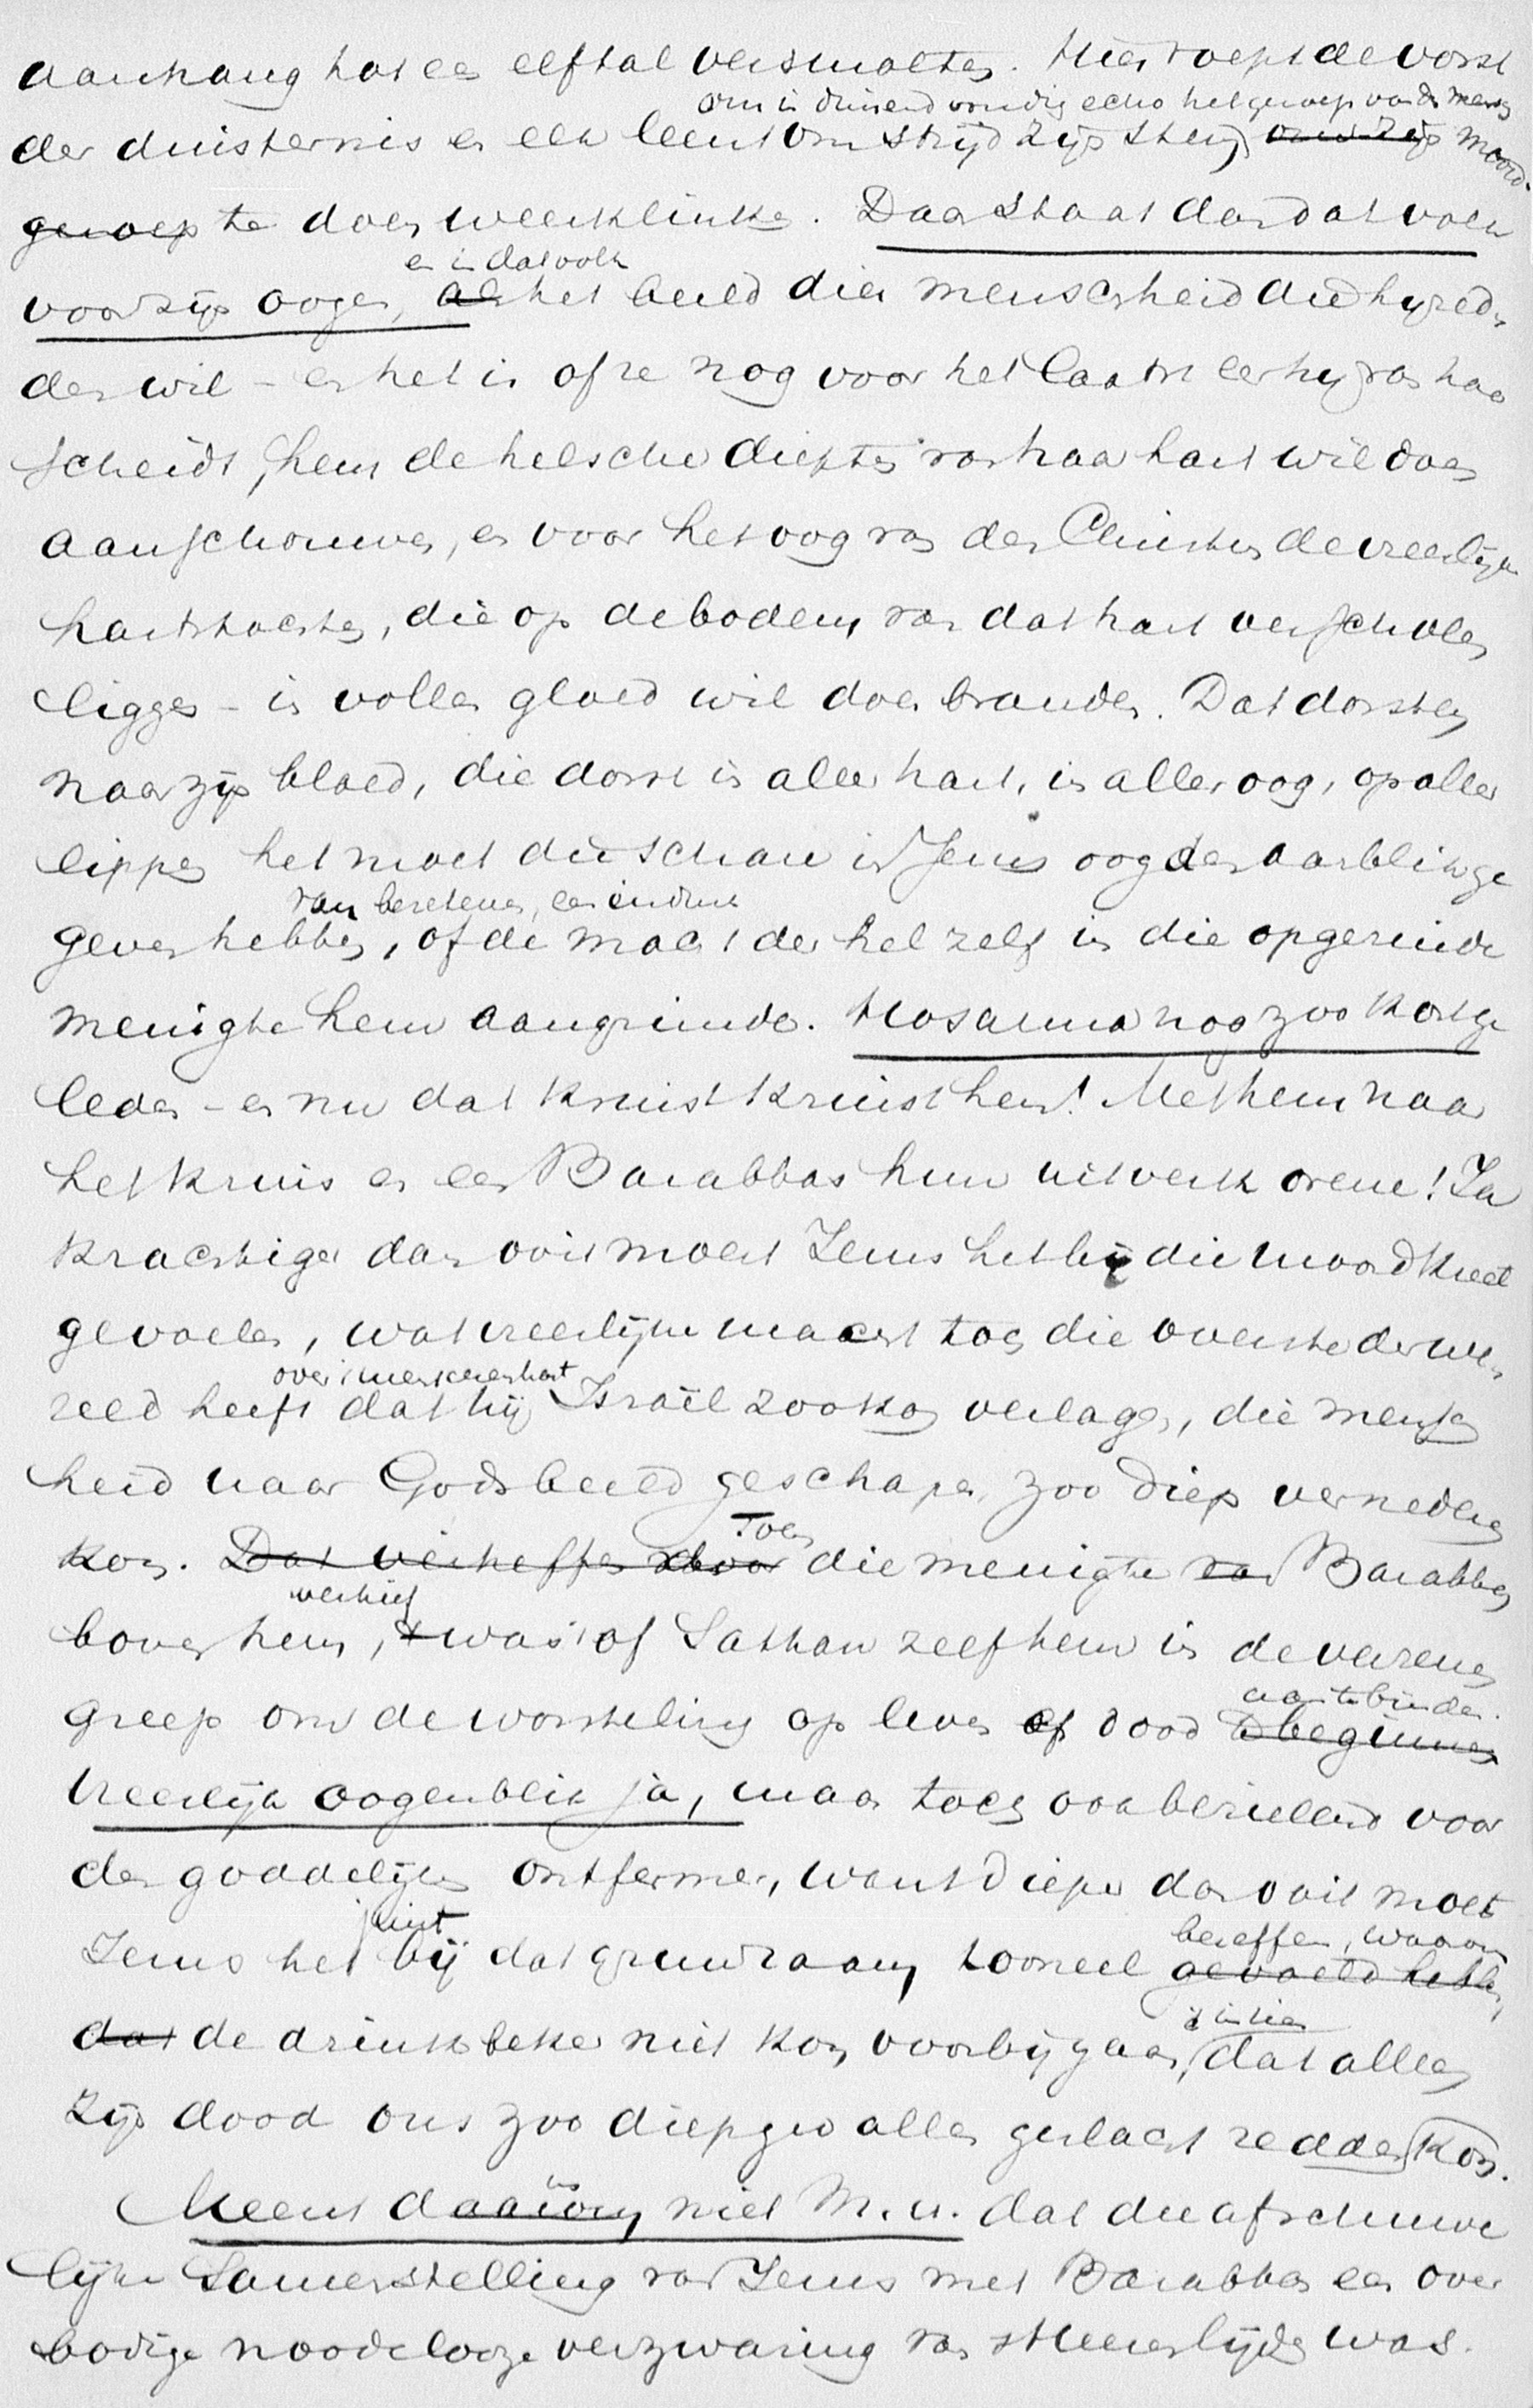 aanhang tot een elftal versmolten. Hier roept de vorst
om in duizendvoudig echo het geroep van de mens
der duisternis en elk leent om strijd zijn stem om zijn moord-
geroep te doen weerklinken. Daar staat dan dat volk
en in dat volk
voor zijn oogen, als het beeld dier menschheid die hij red-
den wil – en het is of ze nog voor het laatst eer hij van haar
scheidt, hem de helsche diepten van haar hart wil doen
aanschouwen, en voor het oog van den Christus de vreeslijke
hartstochten, die op de bodem van dat hart verscholen
liggen – in vollen gloed wil doen branden. Dat dorsten
naar zijn bloed, die dorst in aller hart, in aller oog, op aller
lippen het moet die schare in Jezus oog den aanblik ge
van bezetenen, een indruk
geven hebben, of de macht der hel zelf in die opgeruide
menigte hem aangrimde. Hosanna nog zoo kort ge
leden – en nu dat kruist kruist hem! Met hem naar
het kruis en een Barabbas hun uitverkorene! Ja
krachtiger dan ooit moest Jezus het bij die moordkreet
gevoelen, wat vreeslijke macht toch die overste der we-
over 's menschen hart
reld heeft dat hij Israël zoo kon verlagen, die mensch
heid naar Gods beeld geschapen zoo diep vernederen
Toen
kon. Dat verheffen door die menigte van Barabbas
verhief
boven hem, was 't of Sathan zelf hem in de verzenen
aan te binden.
greep om de worsteling op leven of dood te beginnen
Vreeslijk oogenblik ja, maar toch ook bezielend voor
den goddelijken ontfermer, want dieper dan ooit moet
juist
beseffen, waarom
Jezus het bij dat gruwzaam tooneel gevoeld hebben,
dat de drinkbeker niet kon voorbijgaan, dat alleen
zijn dood ons zoo diep gevallen geslacht redden kon.
Meent daarom niet M. H. dat die afschuwe
lijke samenstelling van Jezus met Barabbas een over
bodige noodelooze verzwaring van 's Heeren lijden was.